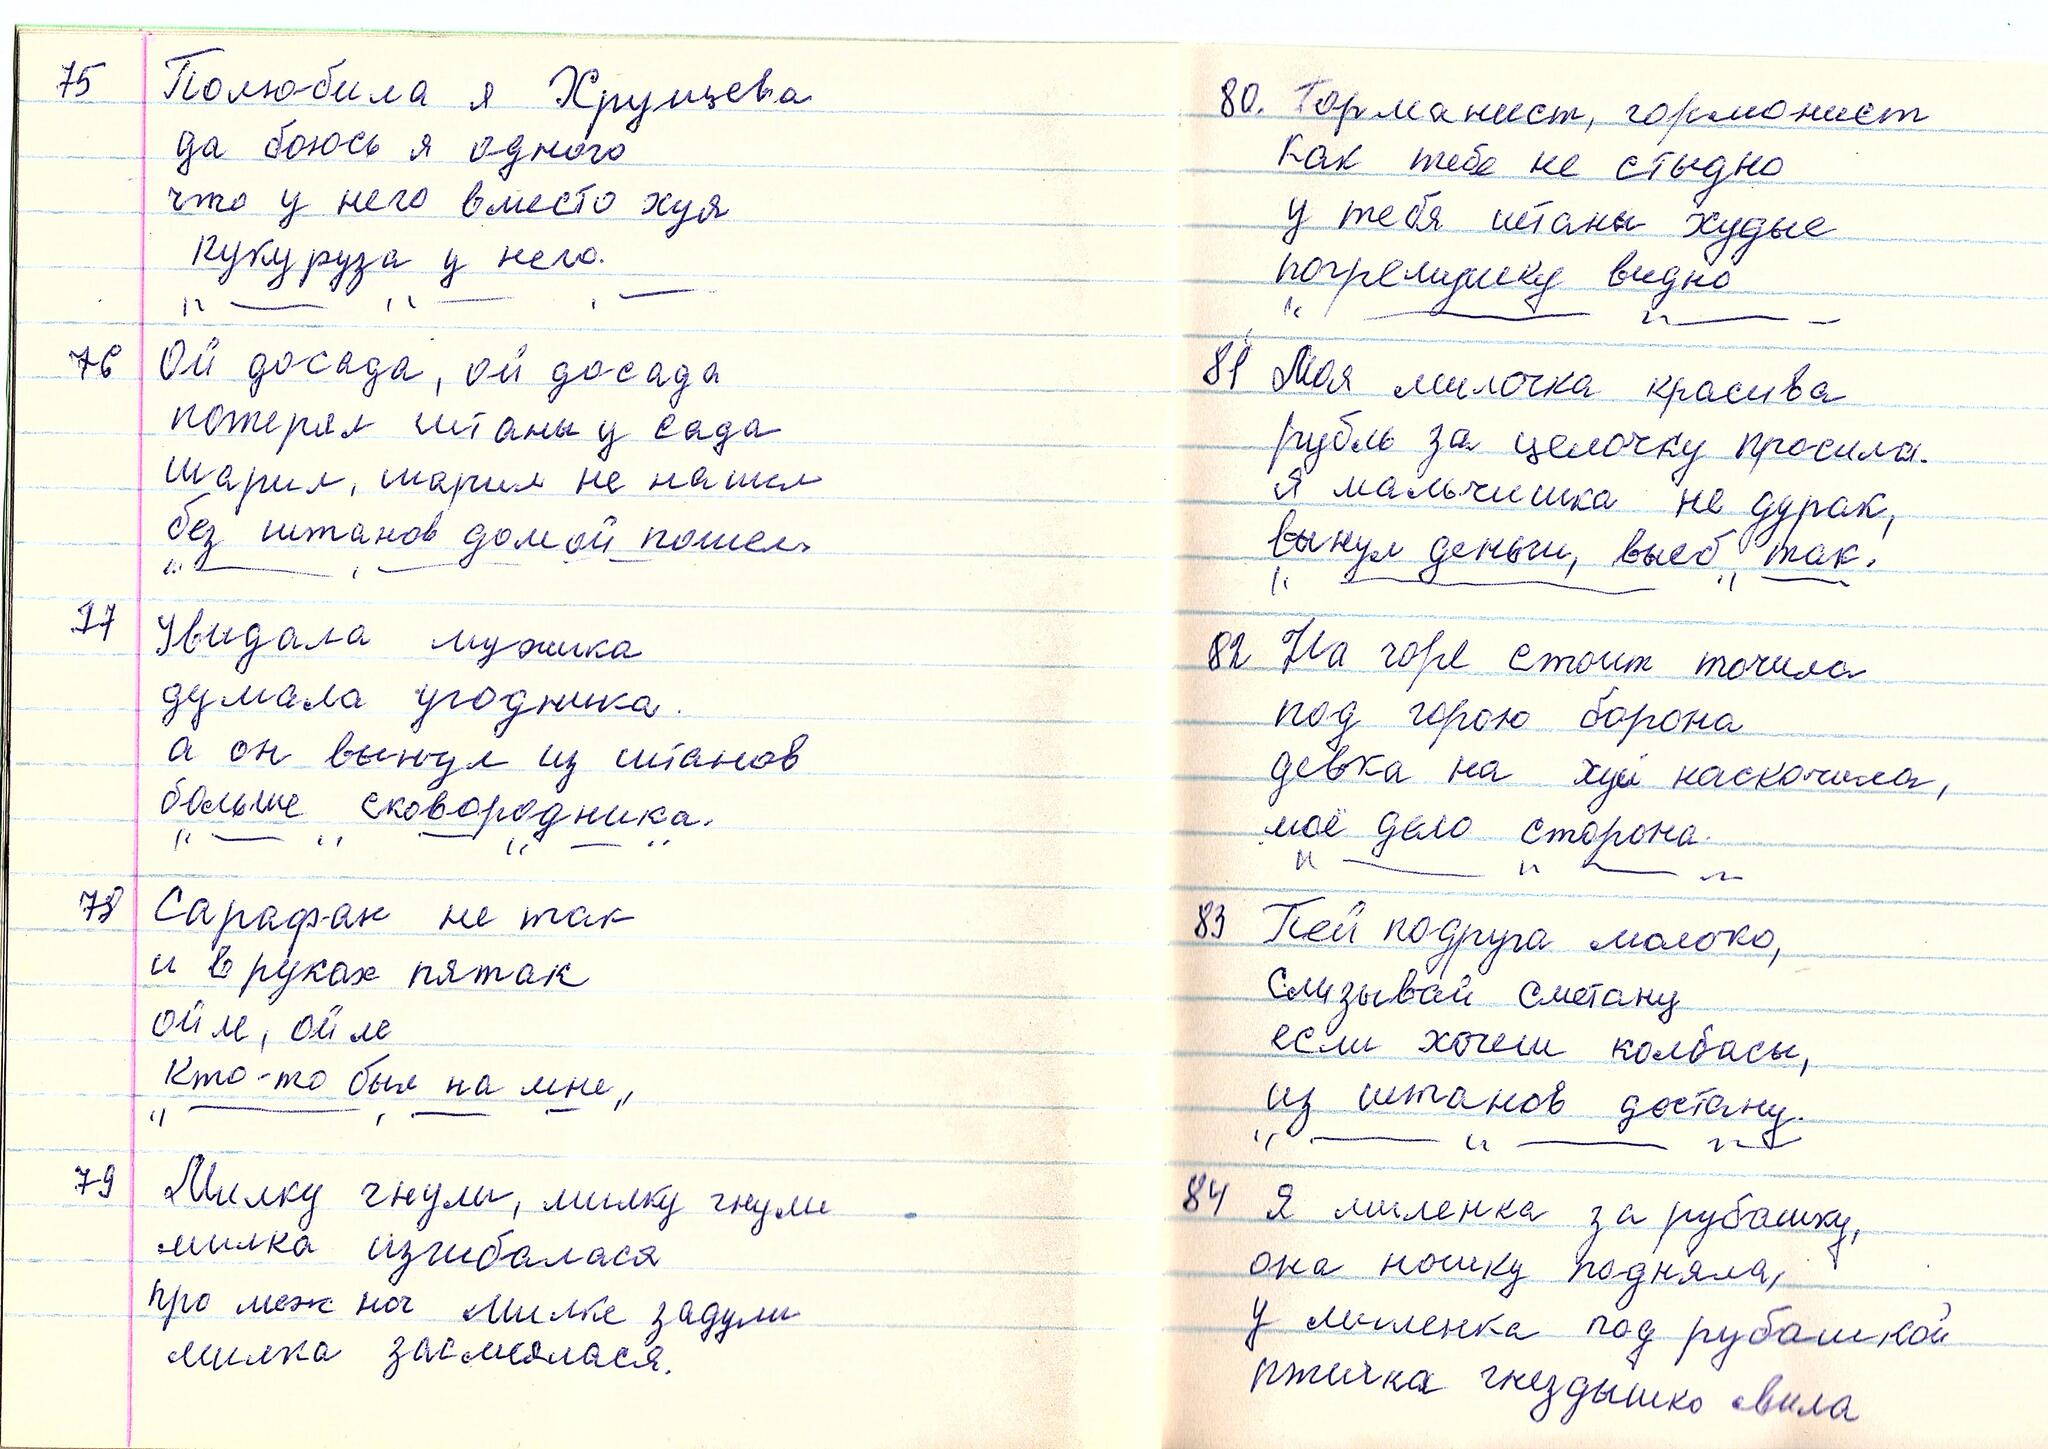 75 Полюбила я Хрущева
да боюсь я одного
что у него вместо хуя
кукуруза у него.
76 Ой досада, ой досада
потерял штаны у сада
шарил, шарил не нашел
без штанов домой пошел.
77 Увидала мужика
думала угодника.
а он вынул из штанов
больше сковородника.
78 Сарафан не так
и в руках пятак
ой ле, ой ле
Кто-то был на мне,,
79 Милку гнули, милку гнули
милка изгибалася
про меж ног милке задули
милка засмеялася.
80. Горманист, гормонист
как тебе не стыдно
у тебя штаны худые
погремушку видно
81 Моя милочка красива
рубль за целочку просила.
я мальчишка не дурак,
вынул деньги, выеб так.
82 На горе стоит точила
под горою борона
девка на хуй наскочила,
моё дело сторона.
83 Пей подруга молоко,
слизывай сметану
если хочеш колбасы,
из штанов достану.
84 Я миленка за рубашку,
она ношку подняла,
у миленка под рубашкой
птичка гнездышко свила